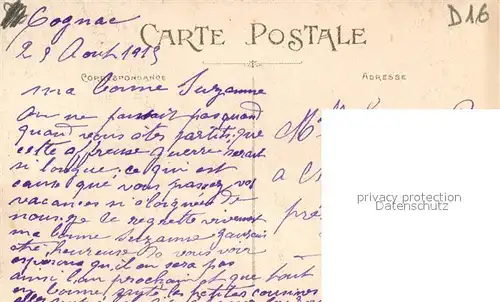 Cognac
D16
29 Août 1915
CARTE POSTALE
CORRESPONDANCE
ADRESSE
ma bonne Suzanne
On ne pensait pas quand
quand vous êtes partis que
cette affreuse guerre serait
si longue. ce qui est
cause que vous passez vos
vacances si éloignés de
nous. je le regrette vivement
ma bonne Suzanne j'aurais
été heureuse de vous voir
espérons qu'il en sera pas
ainsi l'an prochain et que tout
en bonne santé les petites cousines
M
a
pré
privacy protection
Datenschutz